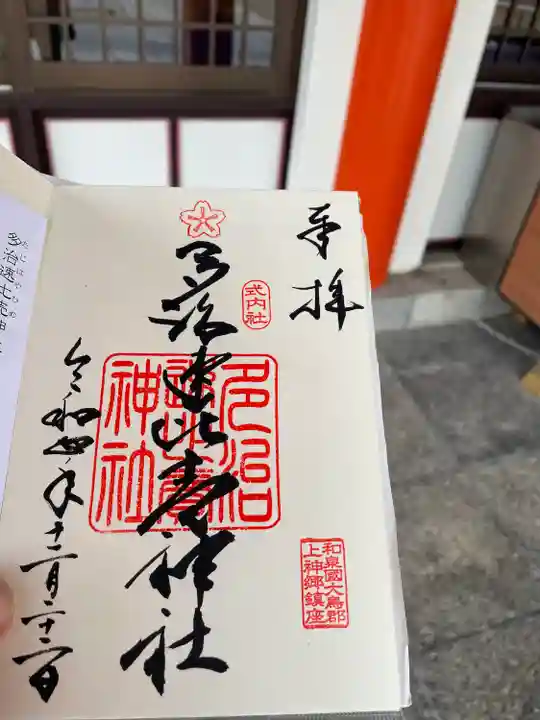 奉拝
式内社
多治速比売神社
多治
速比賣
神社
和泉國大鳥郡
上神郷鎮座
令和四年十二月二十二日
多治速比売神社